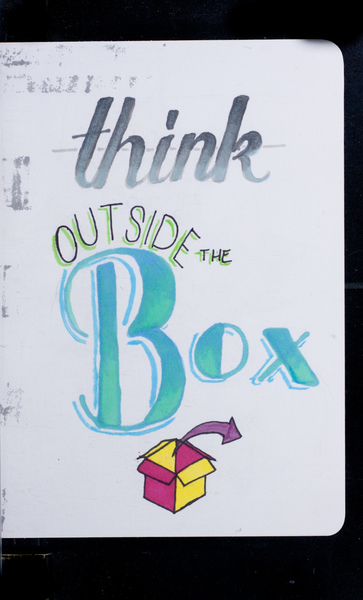 think
OUTSIDE THE
Box